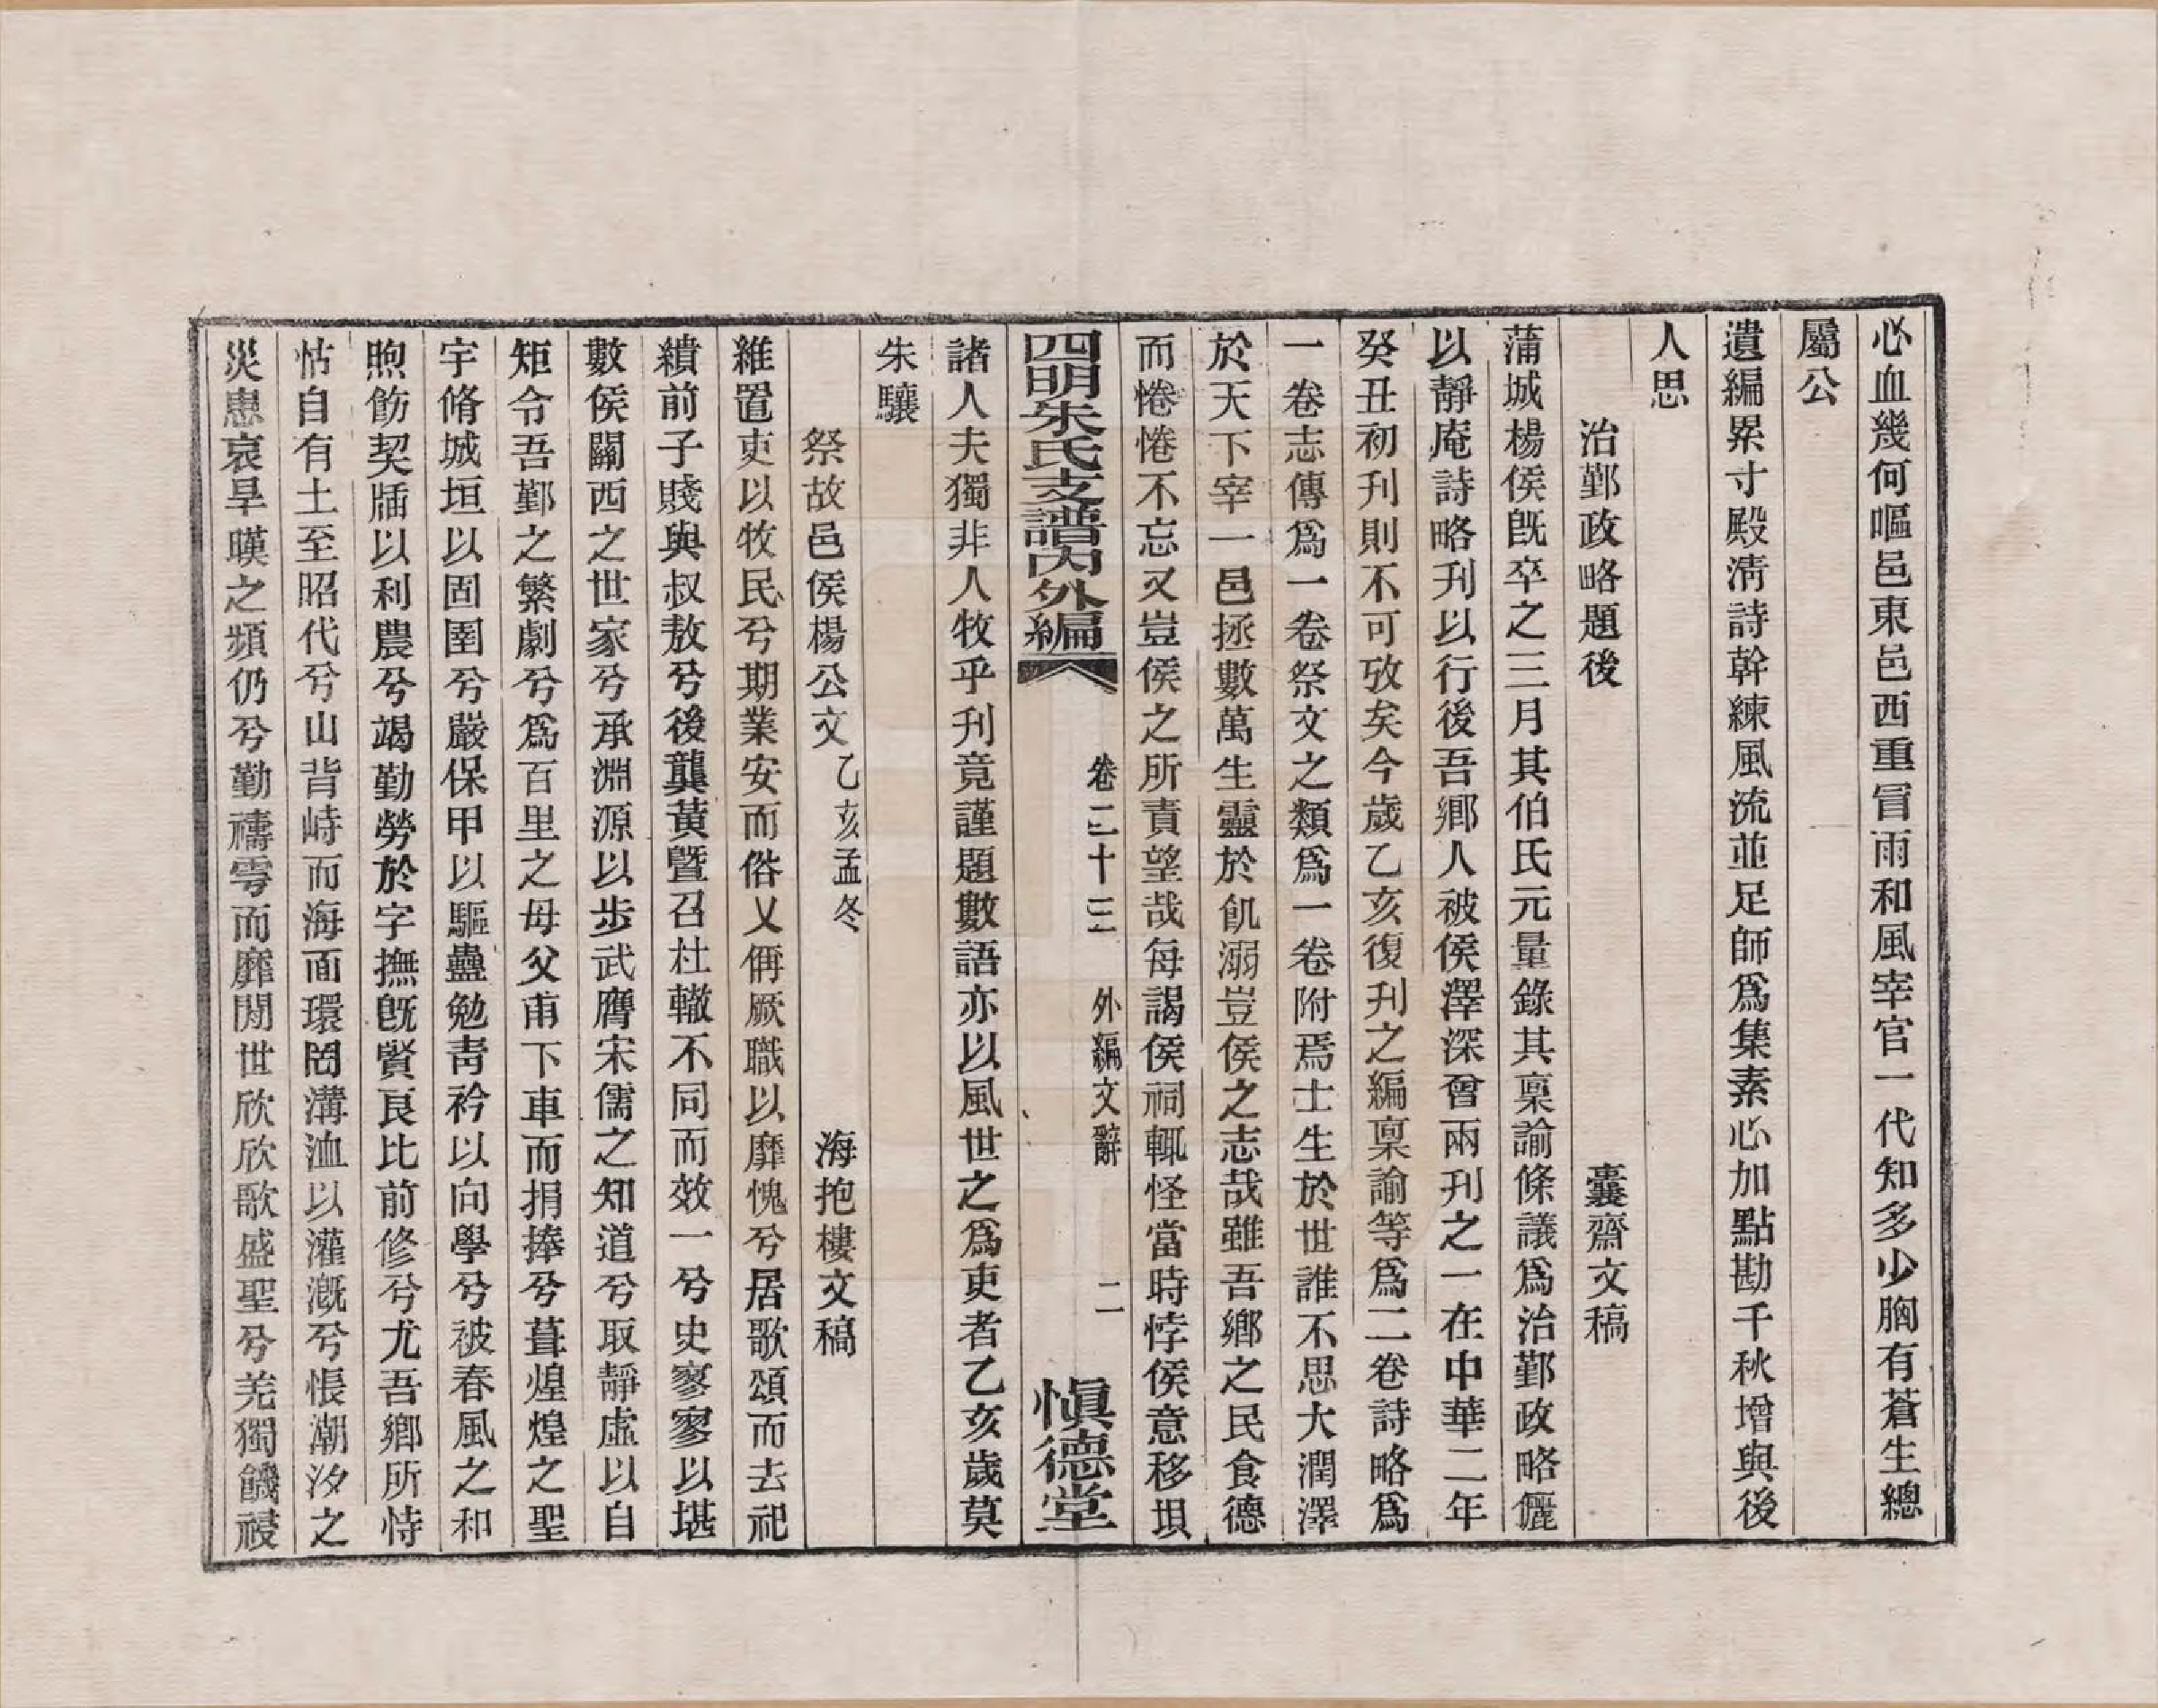 心血幾何嘔邑東邑西重冒雨和風宰官一代知多少胸有蒼生總
屬公
遺編累寸殿清詩幹練風流並足師爲集素心加點勘千秋增與後
人思
治鄞政略題後　囊齋文稿
蒲城楊侯旣卒之三月其伯氏元量錄其稟諭條議爲治鄞政略儷
以靜庵詩略刋以行後吾鄕人被侯澤深曾兩刋之一在中華二年
癸丑初刋則不可攷矣今歲乙亥復刋之編稟諭等爲二卷詩略爲
一卷志傳爲一卷祭文之類爲一卷附焉士生於世誰不思大潤澤
於天下宰一邑拯數萬生靈於飢溺豈侯之志哉雖吾鄕之民食德
而惓惓不忘又豈侯之所責望哉每謁侯祠輒怪當時悖侯意移垻
四明朱氏支譜內外編　卷二十三　外編文辭　二　愼德堂
諸人夫獨非人牧乎刋竟謹題數語亦以風世之爲吏者乙亥歲莫
朱驤
祭故邑侯楊公文乙亥孟冬　海抱樓文稿
維置吏以牧民兮期業安而俗乂偁厥職以靡愧兮居歌頌而去祀
纘前子賤與叔敖兮後龔黃曁召杜轍不同而效一兮史寥寥以堪
數侯關西之世家兮承淵源以步武膺宋儒之知道兮取靜虛以自
矩令吾鄞之繁劇兮爲百里之母父甫下車而捐捧兮葺煌煌之聖
宇脩城垣以固圉兮嚴保甲以驅蠱勉靑衿以向學兮被春風之和
煦飭契牐以利農兮竭勤勞於字撫旣賢良比前修兮尤吾鄕所恃
怙自有土至昭代兮山背峙而海面環罔溝洫以灌漑兮悵潮汐之
災患哀旱暵之頻仍兮勤禱雩而靡閒世欣欣歌盛聖兮羌獨饑祲